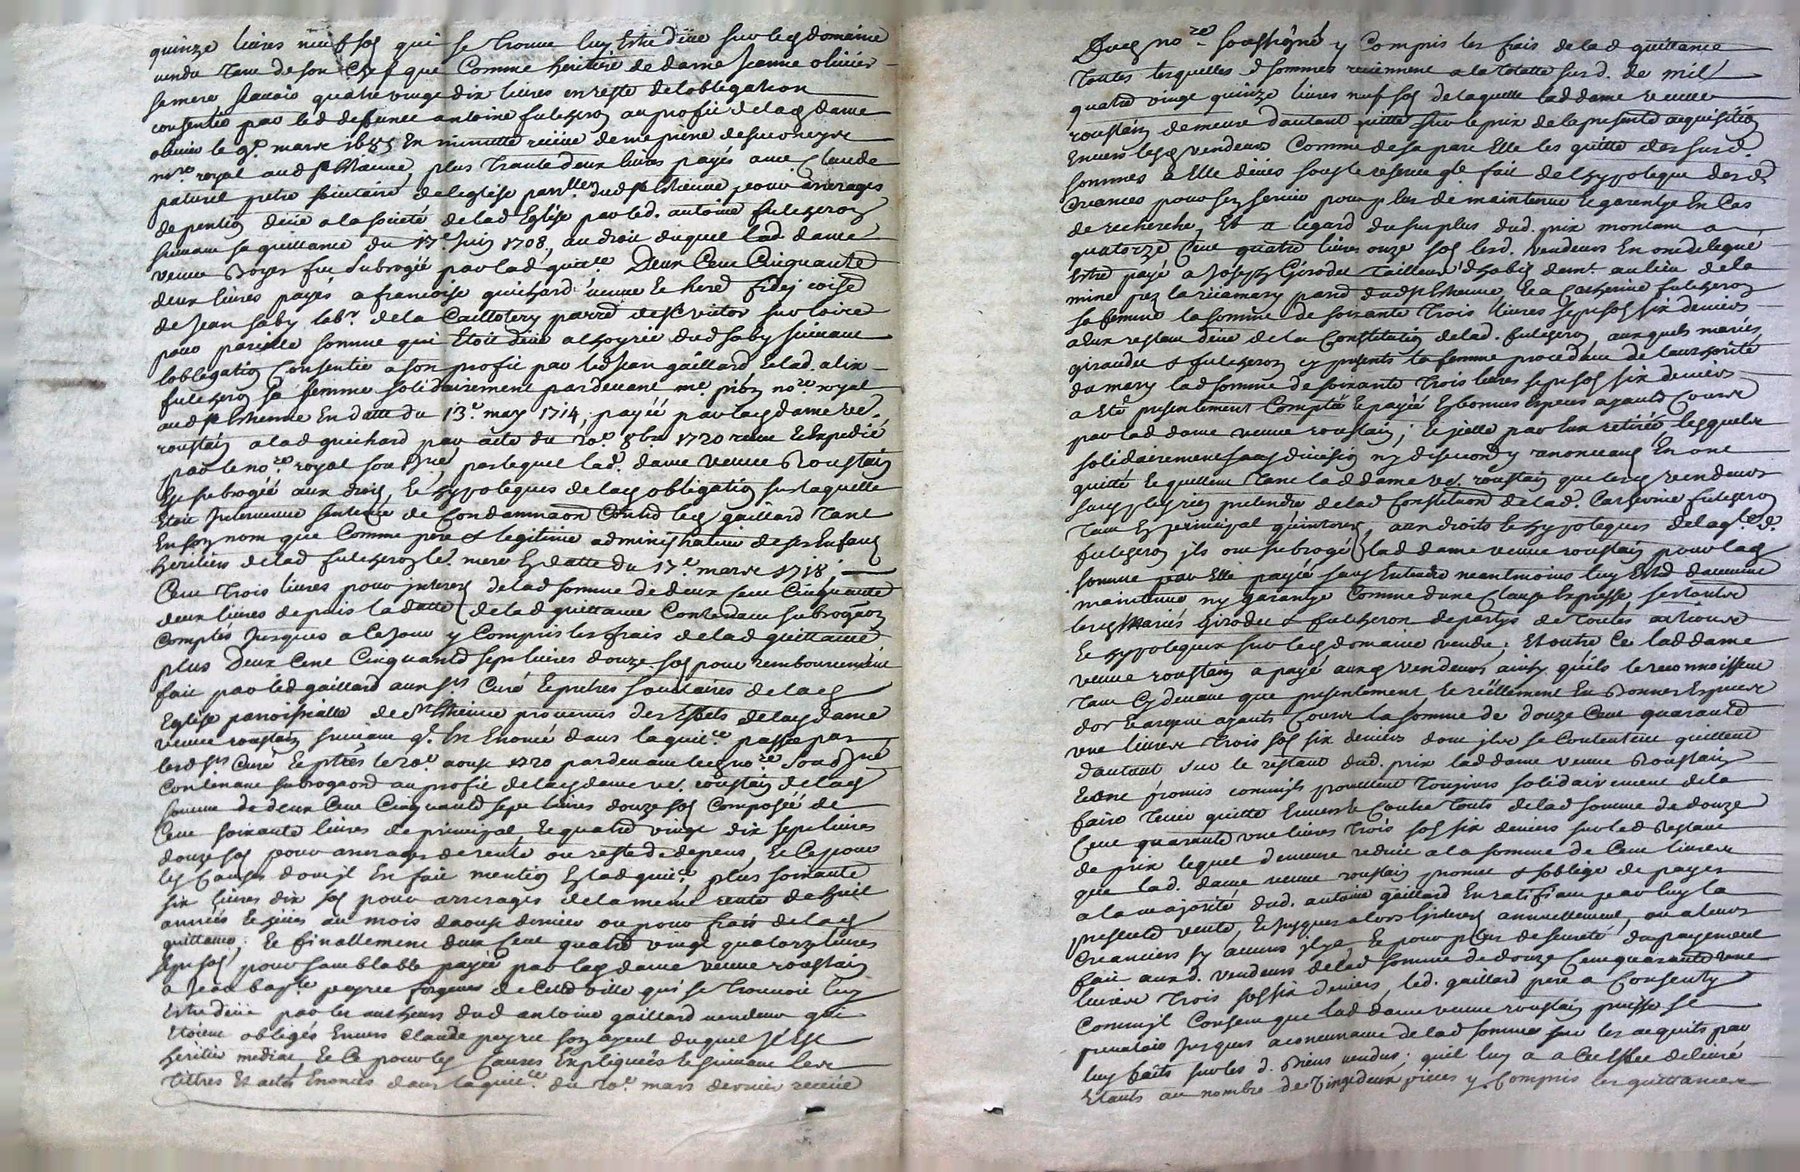 quinze livres neuf sols qui se trouve luy estre düe sur lesd domaine
vendu tant de son chef que comme heritiere de dame Jeanne olivier
sa mere scavoir quatre vingt dix livres en reste de lobligation
consentie par led deffunct antoine fulcheron au profit de lad dame
olivier le 9e mars 1685 En minutte reçüe de me prine
nore royal aud st Etienne, plus Trante deux livres payés a me Claude
paturel pretre societaire de leglise parlle dud st Etienne pour arrerages
de pention düe a la societé de lad Eglise par led. antoine fulcheron
suivant sa quittance du 17e Juin 1708, au droit duquel lad dame
veuve Royer fut subrogée par lad quitce Deux Cent Cinquante
deux livres payés a francoise guichard veuve Et hered fidej coise
de Jean faby labr de la Caillotery parre de st victor sur loire
pour pareille somme qui Etoit düe a l'hoyrie dud faby suivant
lobligation Consentie a son profit par led Jean gaillard Et lad alix
fulcheron sa femme solidairement pardevant me pibon nore royal
aud st Etienne En datte du 13e may 1714, payée par lad dame ve
roustain a lad guichard par acte du 20e 8bre 1720 receu Et Expedié
par le nore royal sousigné par lequel lad dame veuve Roustain
Est subrogée aux droits Et hypoteques de lad obligation sur laquelle
Etoit Intervenue sentence de Condamnaon Contre led gaillard Tant
En son nom que Comme pere & legitime administrateur de ses Enfans
heritiers de lad fulcheron le. mere En datte du 17e mars 1718
Cent Trois livres pour interets de lad somme de deux Cent Cinquante
deux livres depuis la datte de lad quittance Contenant subrogaon
Comptés Jusques a ce jour y Compris les frais de lad quittance
plus Deux Cent Cinquante sept livres douze sols pour remboursement
fait par led gaillard aux srs Curé Et pretres societaires de lad
Eglise paroissialle de st Etienne provenus des Effets de lad dame
veuve roustain suivant qt Est Enoncé dans la quitce passée par
lesd srs Curé Et pretres le 20e aoust 1720 pardevant led nore Sousigné
Contenant subrogaon au profit de lad dame ve. roustain de lad
somme de deux Cent Cinquante sept livres douze sols Composée de
Cent soixante livres de principal Et quatre vingt dix sept livres
douze sols pour arrerages de rente ou reste de depens, Et Ce pour
les Causes dont il En fait mention En lad quitce plus soixante
six livres dix sols pour arrerages de la méme rente de huit
années Echües au mois daoust dernier ou pour frais de lad
quittance; Et finallement deux Cent quatre vingt quatorze livres
sept sols pour samblable payée par lad dame veuve roustain
a Jean bapte peyre forgeur de Cette ville qui se trouvoit luy
estre düe par les autheurs dud antoine gaillard vendeur qui
Etoient obligés Envers Claude peyre son ayeul duquel Il Est
heritier mediat Et Ce pour les Causes Expliquées Et suivant les
Tittres Et actes Enoncés dans la quitce du 20e mars dernier reçüe
Dud nore soussigné y Compris les frais de lad quittance
Toutes lesquelles d sommes reviennent a la Totalle susd. de mil
quatre vingt quinze livres neuf sols de laquelle lad dame veuve
roustain demeure d'autant quitte sur le prix de la presente acquisition
Envers lesd vendeurs Comme de sa part Elle les quitte des susd.
sommes a Elle dües sous la reserve qle fait de l'hypoteque desd
Creances pour s'en servir pour plus de maintenue Et garentye En Cas
de recherche, Et a legard du surplus dud. prix montant a
quatorze Cent quatre livres onze sols lesd. vendeurs En ont delegué
Estre payé a Joseph Girodet Tailleur d'habits demt. au lieu de la
mine prez la rüamary parre dud st Etienne Et a Catherine fulcheron
sa femme la somme de soixante Trois livres sept sols six deniers
a Eux restant düe de la Constitution de lad. fulcheron, auxquels mariés
giraudet & fulcheron cy presents la femme procedant de lauthorité
du mary lad somme de soixante Trois livres sept sols six deniers
a Eté presentement Comptée Et payée En bonnes Especes ayants Cours
par lad dame veuve roustain; Et jcelle par Eux retirée lesquels
solidairement sans division ny discution y renonceants En ont
quitté Et quittent Tant lad dame ve. roustain que lesd vendeurs
sans plus rien pretendre de lad Constitution de lad. Catherine fulcheron
Tant En principal qu'interets, aux droits Et hypoteques de lad
fulcheron jls ont subrogé lad dame veuve roustain pour lad
somme par Elle payée sans Entendre neantmoins luy Estre d'aucune
maintenue ny garantye Comme d'une Clause Expresse, s'estants
lesd Mariés Girodet & fulcheron departys de Toutes actions
Et hypoteques sur lesd domaine vendu; Et outre Ce lad dame
veuve roustain a payé auxd vendeurs, ainsy qu'ils le reconnoissent
Tant Cy devant que presentement Et réellement En Bonnes Especes
dor Et argent ayants Cours la somme de douze Cent quarante
une livres Trois sols six deniers dont jls se Contentent quittent
d'autant sur le restant dud. prix lad dame veuve Roustain
Et ont promis comme jls promettent Toujours solidairement de la
faire Tenir quitte Envers Et Contre Touts de lad somme de douze
Cent quarante une livres Trois sols six deniers sur led Restant
de prix lequel demeure reduit a la somme de Cent livres
que lad. dame veuve roustain promet & soblige de payer
a la majorité dud. antoine gaillard En ratiffiant par luy la
presente vente, Et jusques alors l'jnterest annuellement, ou a leurs
Creanciers sy aucuns jl y a, Et pour plus de seureté du payement
fait aux d. vendeurs de lad somme de douze Cent quarante une
livres Trois sols six deniers, led. gaillard pere a Consenty
Comme jl Consent que lad dame veuve roustain puisse se
prevaloir jusques a concurrance de lad somme sur les acquits par
luy faits sur les d. Biens vendus; qu'il luy a a Cet Effet delivré
Etants au nombre de vingt deux pieces y Compris les quittances